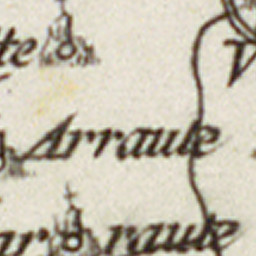 te
V
Arraute
ar raute